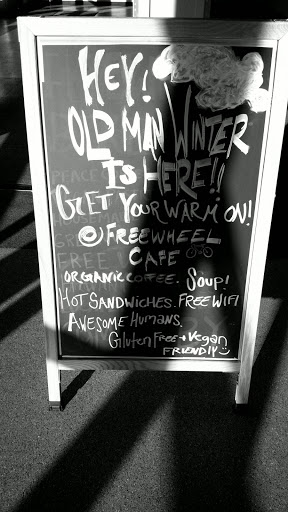 HEY!
OLD MAN WINTER
IS HERE!!
GET YOUR WARM ON!
@ FREEWHEEL
CAFE
ORGANIC COFFEE. SOUP!
HOT SANDWICHES. FREE WIFI
AWESOME HUMANS.
GLUTEN FREE + VEGAN
FRIENDLY